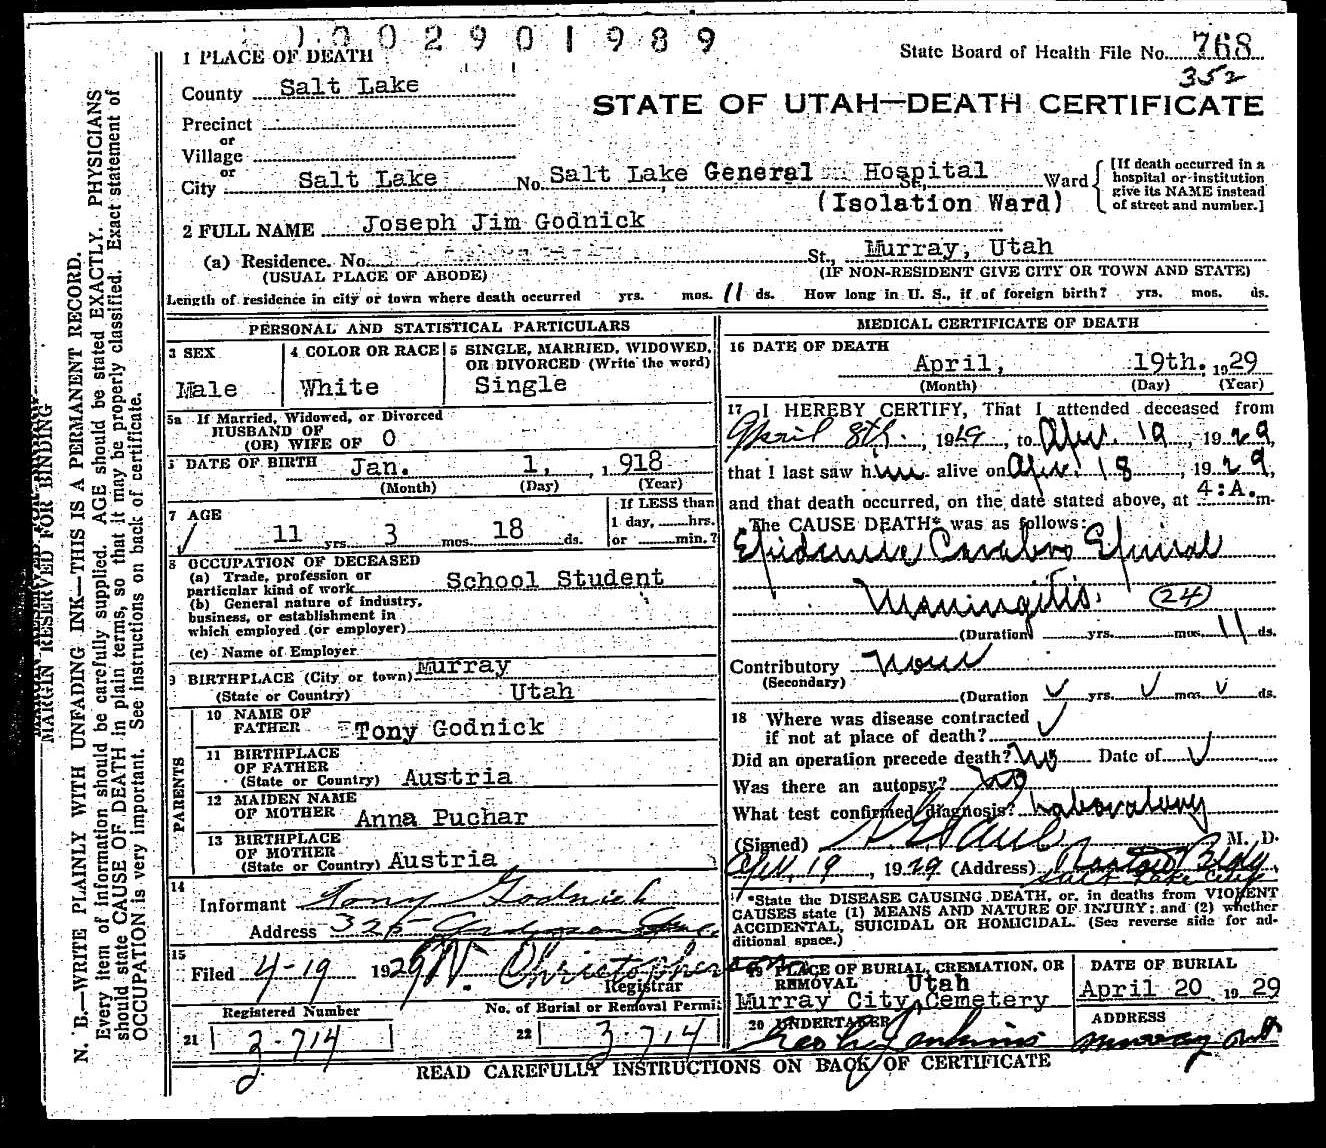 1002901989
1 PLACE OF DEATH
State Board of Health File No. 768
352
County Salt Lake
STATE OF UTAH—DEATH CERTIFICATE
Precinct
or
Village
or
City Salt Lake No. Salt Lake General Hospital St., Ward
[If death occurred in a hospital or institution give its NAME instead of street and number.]
(Isolation Ward)
2 FULL NAME Joseph Jim Godnick
(a) Residence. No. St., Murray, Utah
(USUAL PLACE OF ABODE) (IF NON-RESIDENT GIVE CITY OR TOWN AND STATE)
Length of residence in city or town where death occurred yrs. mos. 11 ds. How long in U. S., if of foreign birth? yrs. mos. ds.
PERSONAL AND STATISTICAL PARTICULARS
3 SEX
Male
4 COLOR OR RACE
White
5 SINGLE, MARRIED, WIDOWED, OR DIVORCED (Write the word)
Single
5a If Married, Widowed, or Divorced
HUSBAND OF
(OR) WIFE OF O
DATE OF BIRTH Jan. 1, 1918
(Month) (Day) (Year)
7 AGE
11 yrs. 3 mos. 18 ds.
If LESS than
1 day, hrs.
or min.?
8 OCCUPATION OF DECEASED
(a) Trade, profession or
particular kind of work School Student
(b) General nature of industry,
business, or establishment in
which employed (or employer)
(c) Name of Employer
9 BIRTHPLACE (City or town) Murray
(State or Country) Utah
PARENTS
10 NAME OF
FATHER Tony Godnick
11 BIRTHPLACE
OF FATHER
(State or Country) Austria
12 MAIDEN NAME
OF MOTHER Anna Puchar
13 BIRTHPLACE
OF MOTHER
(State or Country) Austria
14
Informant Tony Godnich
Address 325
15
Filed 4-19 1929 W. Christopherson
Registrar
Registered Number
21 3-714
No. of Burial or Removal Permit
22 3-714
MEDICAL CERTIFICATE OF DEATH
16 DATE OF DEATH
April, 19th. 1929
(Month) (Day) (Year)
17 I HEREBY CERTIFY, That I attended deceased from
April 8th. 1929, to Apr. 19, 1929,
that I last saw him alive on Apr. 18, 1929,
and that death occurred, on the date stated above, at 4:A. m.
The CAUSE DEATH* was as follows:
Epidemic Cerebro Spinal
Meningitis. (24)
(Duration yrs. mos. 11 ds.
Contributory None
(Secondary)
(Duration yrs. mos. ds.
18 Where was disease contracted
if not at place of death?
Did an operation precede death? No Date of
Was there an autopsy? No
What test confirmed diagnosis? Laboratory
(Signed) M. D.
Apr. 19, 1929 (Address) Bldg.
Salt Lake City
*State the DISEASE CAUSING DEATH, or, in deaths from VIOLENT
CAUSES state (1) MEANS AND NATURE OF INJURY; and (2) whether
ACCIDENTAL, SUICIDAL OR HOMICIDAL. (See reverse side for ad-
ditional space.)
19 PLACE OF BURIAL, CREMATION, OR
REMOVAL Utah
Murray City Cemetery
DATE OF BURIAL
April 20 1929
20 UNDERTAKER
Jenkins
ADDRESS
Murray Ut
READ CAREFULLY INSTRUCTIONS ON BACK OF CERTIFICATE
MARGIN RESERVED FOR BINDING
N. B.—WRITE PLAINLY WITH UNFADING INK—THIS IS A PERMANENT RECORD.
Every item of information should be carefully supplied. AGE should be stated EXACTLY. PHYSICIANS
should state CAUSE OF DEATH in plain terms, so that it may be properly classified. Exact statement of
OCCUPATION is very important. See instructions on back of certificate.